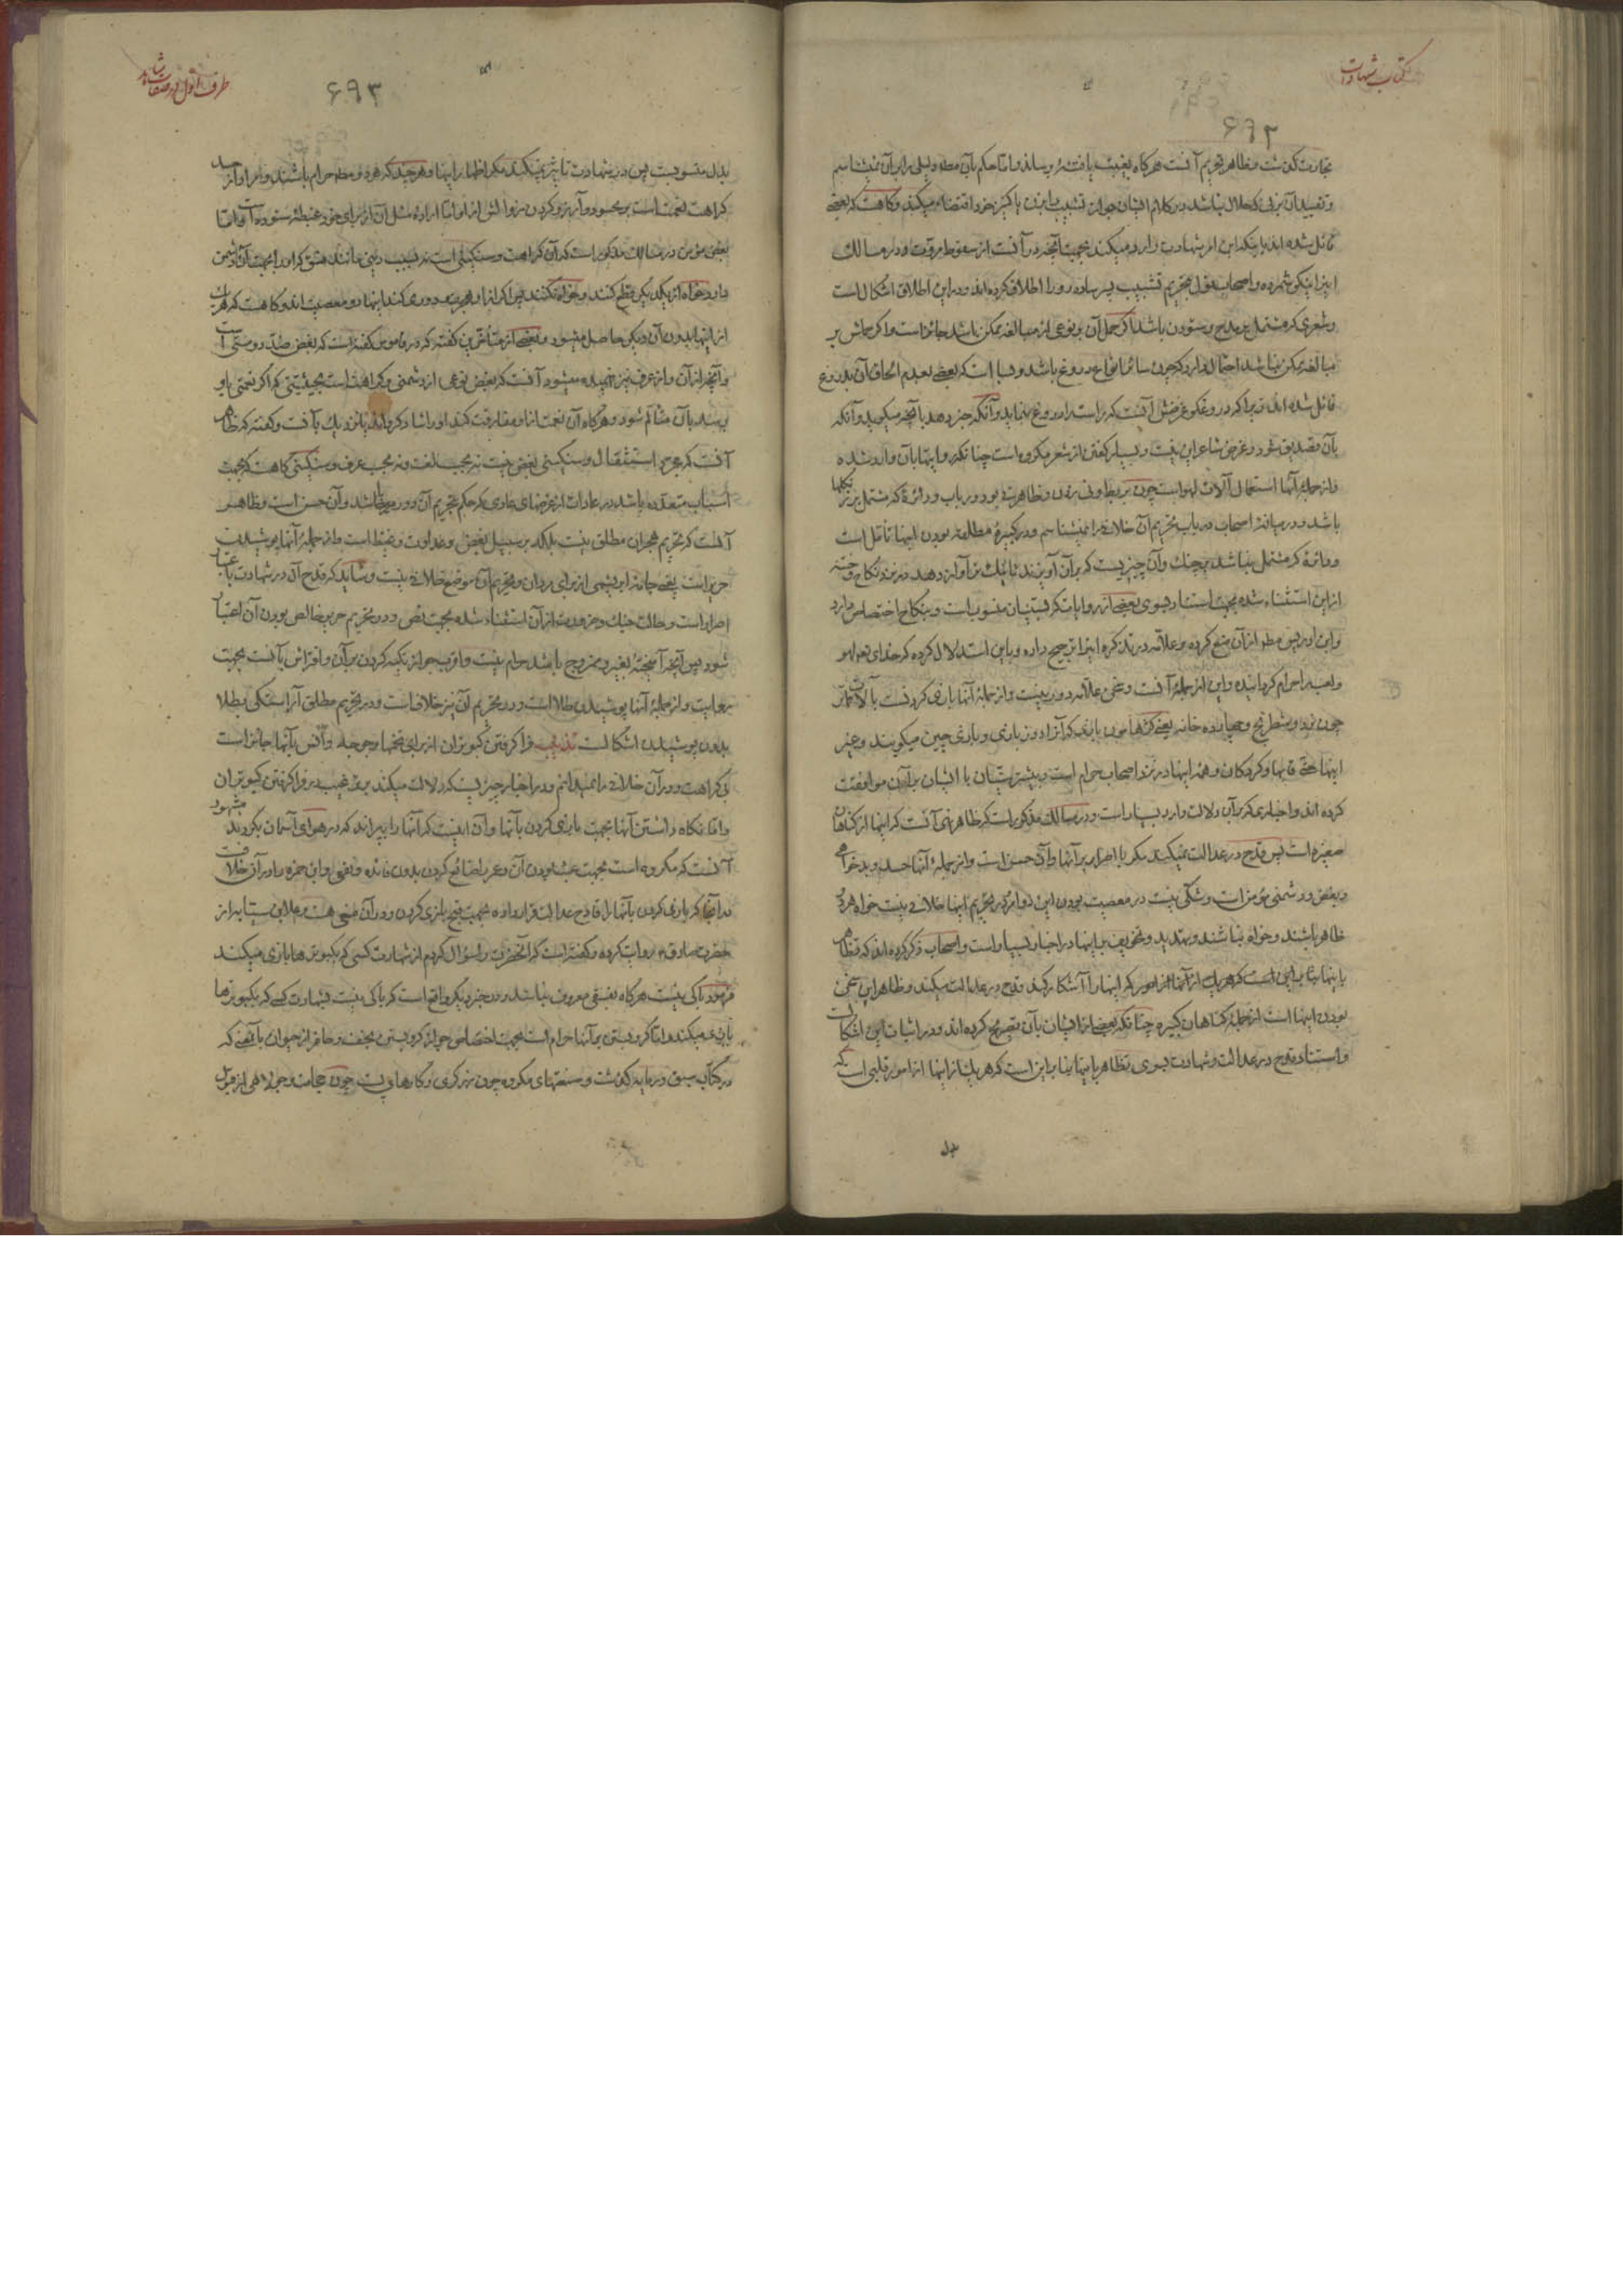 کتاب شهادات
۶۹۲
تجارت گذشت و ظاهر تحریم آنست هر گاه بغیبت یافته رساند و اما حکم بآن مط دلیلی برای آن نمیشناسم
و تقیید آن بزنی که حلال نباشد در کلام ایشان جواز تشبیب بزن یا کنیز خود اقتضاء میکند و گاهست که بعضی
قائل شده اند باینکه این امر شهادت را رد میکند بجهت آنچه در آنست از سقوط مروت و در مسالک
اینرا نیکو شمرده و اصحاب قول بتحریم تشبیب پسر ساده رو را اطلاق کرده اند و در این اطلاق اشکال است
و شعری که مشتمل بر مدح و ستودن باشد اگر حمل آن بر نوعی از مبالغه ممکن باشد جائز است و اگر حملش بر
مبالغه ممکن نباشد احتمال دارد که چون سائر انواع دروغ باشد و بسا است که بعضی بعدم الحاق آن بدروغ
قائل شده اند زیرا که دروغگو غرضش آنست که راست را دروغ نماید و آنکه خبر دهد بآنچه میگوید و آنکه
بآن تصدیق شود و غرض شاعر این نیست و بسیار گفتن از شعر مکروه است چنانکه روایتها بآن وارد شده
و از جمله آنها استعمال آلات لهو است چون بربط و نی زدن و ظاهر در بودن رباب و دائرهٔ که مشتمل بر زنگلها
باشد و در میانهٔ اصحاب در باب تحریم آن خلاف را نمیشناسم و در کبیرهٔ مطلقه بودن اینها تأمل است
و دائرهٔ که مشتمل نباشد بر چنگ و آن چیزیست که بر آن آویزند تا بانگ زند آواز دهد در نزد نکاح و ختنه
از این استثناء شده بجهت استناد بسوی بعضی از روایات که بسنیان منسوب است و بنکاح اختصاص دارد
و ابن ادریس مط از آن منع کرده و علامه در تذکره اینرا ترجیح داده و باین استدلال کرده که خدای تع لهو
و لعب را حرام گردانیده و این از جملهٔ آنست و سخن علامه دور نیست و از جملهٔ آنها بازی کردنست بآلات قمار
چون نرد و شطرنج و چهارده خانه یعنی گردهامون بازی که آنرا دوز بازی و بازی چین میگویند و غیر
اینها حتی قاپها و گردکان و همهٔ اینها در نزد اصحاب حرام است و بیشتر سنیان با ایشان بر آن موافقت
کرده اند و اخباری که بر آن دلالت دارد بسیار است و در مسالک مذکور است که ظاهر نهی آنست که اینها از گناهان
صغیره است پس قدح در عدالت نمیکند مگر با اصرار بر آنها و آن حسن است و از جملهٔ آنها حسد و بدخواهی
و بغض و دشمنی مؤمن است و شکی نیست در معصیت بودن این دو امر در تحریم اینها خلافی نیست خواه هر دو
ظاهر باشند و خواه نباشند و تهدید و تخویف بر اینها در اخبار بسیار است و اصحاب ذکر کرده اند که تظاهر
باینها بنا بر این است که هر یک از آنها از اموریکه اینها را آشکار کند قدح در عدالت میکند و ظاهر این سخن
بودن اینها است از جملهٔ گناهان کبیره چنانکه بعضی از ایشان بآن تصریح کرده اند و در اثبات این اشکالست
و استناد قدح در عدالت و شهادت بسوی تظاهر باینها بنا بر این است که هر یک از اینها از امور قلبی است که
بدل
طرف اول در صفات شاهد
۶۹۳
بدل منسوبست پس در شهادت تأثیر نمیکند مگر اظهار اینها و هر چند که هر دو مط حرام باشند و مراد از حسد
کراهت نعمت است بر محسود و آرزو کردن زوالش از او اما اراده مثل آن از برای خود غبطهٔ ستوده است و اما
بغض مؤمن در مسالک مذکور است که آن کراهت و سنگینی است نه بسبب دینی مانند فسق که او را بجهت آن دشمن
دارد خواه از یکدیگر قطع کنند و خواه نکنند پس اگر از او هجرت و دوری کند اینها دو معصیت اند و گاهست که هر یک
از اینها بدون آن دیگر حاصل میشود و بعضی از متأخرین گفته که در قاموس گفته است که بغض ضد دوستی است
و آنچه از آن و از عرف نیز فهمیده میشود آنست که بغض نوعی از دشمنی و کراهت است بحیثیتی که اگر نعمتی باو
برسد بآن متألم شود و هر گاه آن نعمت از او مفارقت کند او را شاد گرداند یا نزدیک بآنست و گفته که ظاهر
آنست که مجرد استثقال و سنگینی بغض نیست نه بحسب لغت و نه بحسب عرف و سنگینی گاهست که بجهت
اسباب متعدده باشد در عادات از غرضهای عادی که حکم بتحریم آن دور میباشد و آن حسن است و ظاهر
آنست که تحریم هجران مطلق نیست بلکه بر سبیل بغض و عداوت و غیظ است و از جملهٔ آنها پوشیدن
حریر است یعنی جامهٔ ابریشمی از برای مردان و تحریم آن موضع خلافی نیست و شاید که قدح آن در شهادت باعتبار
اصرار است و حالت جنگ و ضرورت از آن استثناء شده بجهت نص و در تحریم حریر خالص بودن آن اعتبار
شود پس آنچه آمیخته بغیر و ممزوج باشد حرام نیست و اقرب جواز تکیه کردن بر آن و افتراش بآنست بجهت
روایت و از جملهٔ آنها پوشیدن طلا است و در تحریم آن نیز خلاف است و در تحریم مطلق آراستگی بطلا
بدون پوشیدن اشکالست تذنیب فرا گرفتن کبوتران از برای تخمها و جوجه و انس بآنها جائز است
بی کراهت و در آن خلافی را نمیدانم و در اخبار چیزیست که دلالت میکند بر ترغیب در فرا گرفتن کبوتران
و اما نگاه داشتن آنها بجهت بازی کردن بآنها و آن اینست که آنها را بپراند که در هوای آسمان بگردند مشهور
آنست که مکروه است بجهت عبث بودن آن و عمر را ضائع کردن بدون فائده و نفعی و ابن حمزه را در آن خلافست
در آنجا که بازی کردن بآنها را قادح عدالت قرار داده بجهت قبح بازی کردن و در آن منعی هست و علاء بن سیابه از
حضرت صادق ع روایت کرده و گفته است که آنحضرت را سؤال کردم از شهادت کسی که بکبوترها بازی میکند
فرمود باکی نیست هر گاه بفسقی معروف نباشد و در خبر دیگر واقع است که باکی نیست بشهادت کسی که بکبوترها
بازی میکند اما گرو بستن بر آنها حرام است بجهت اختصاص جواز گرو بستن بخف و حافر از حیوان بآنقسمی که
در کتاب سبق و رمایه گذشت و صنعتهای مکروه چون زرگری و کارهای پست چون حجامت و جولاهی از قبیل